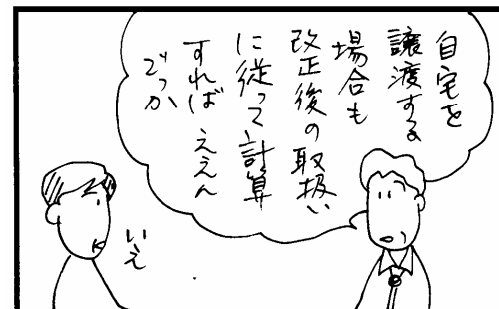 自宅を
譲渡する
場合も
改正後の取扱い
に従って計算
すればええん
でっか
いえ